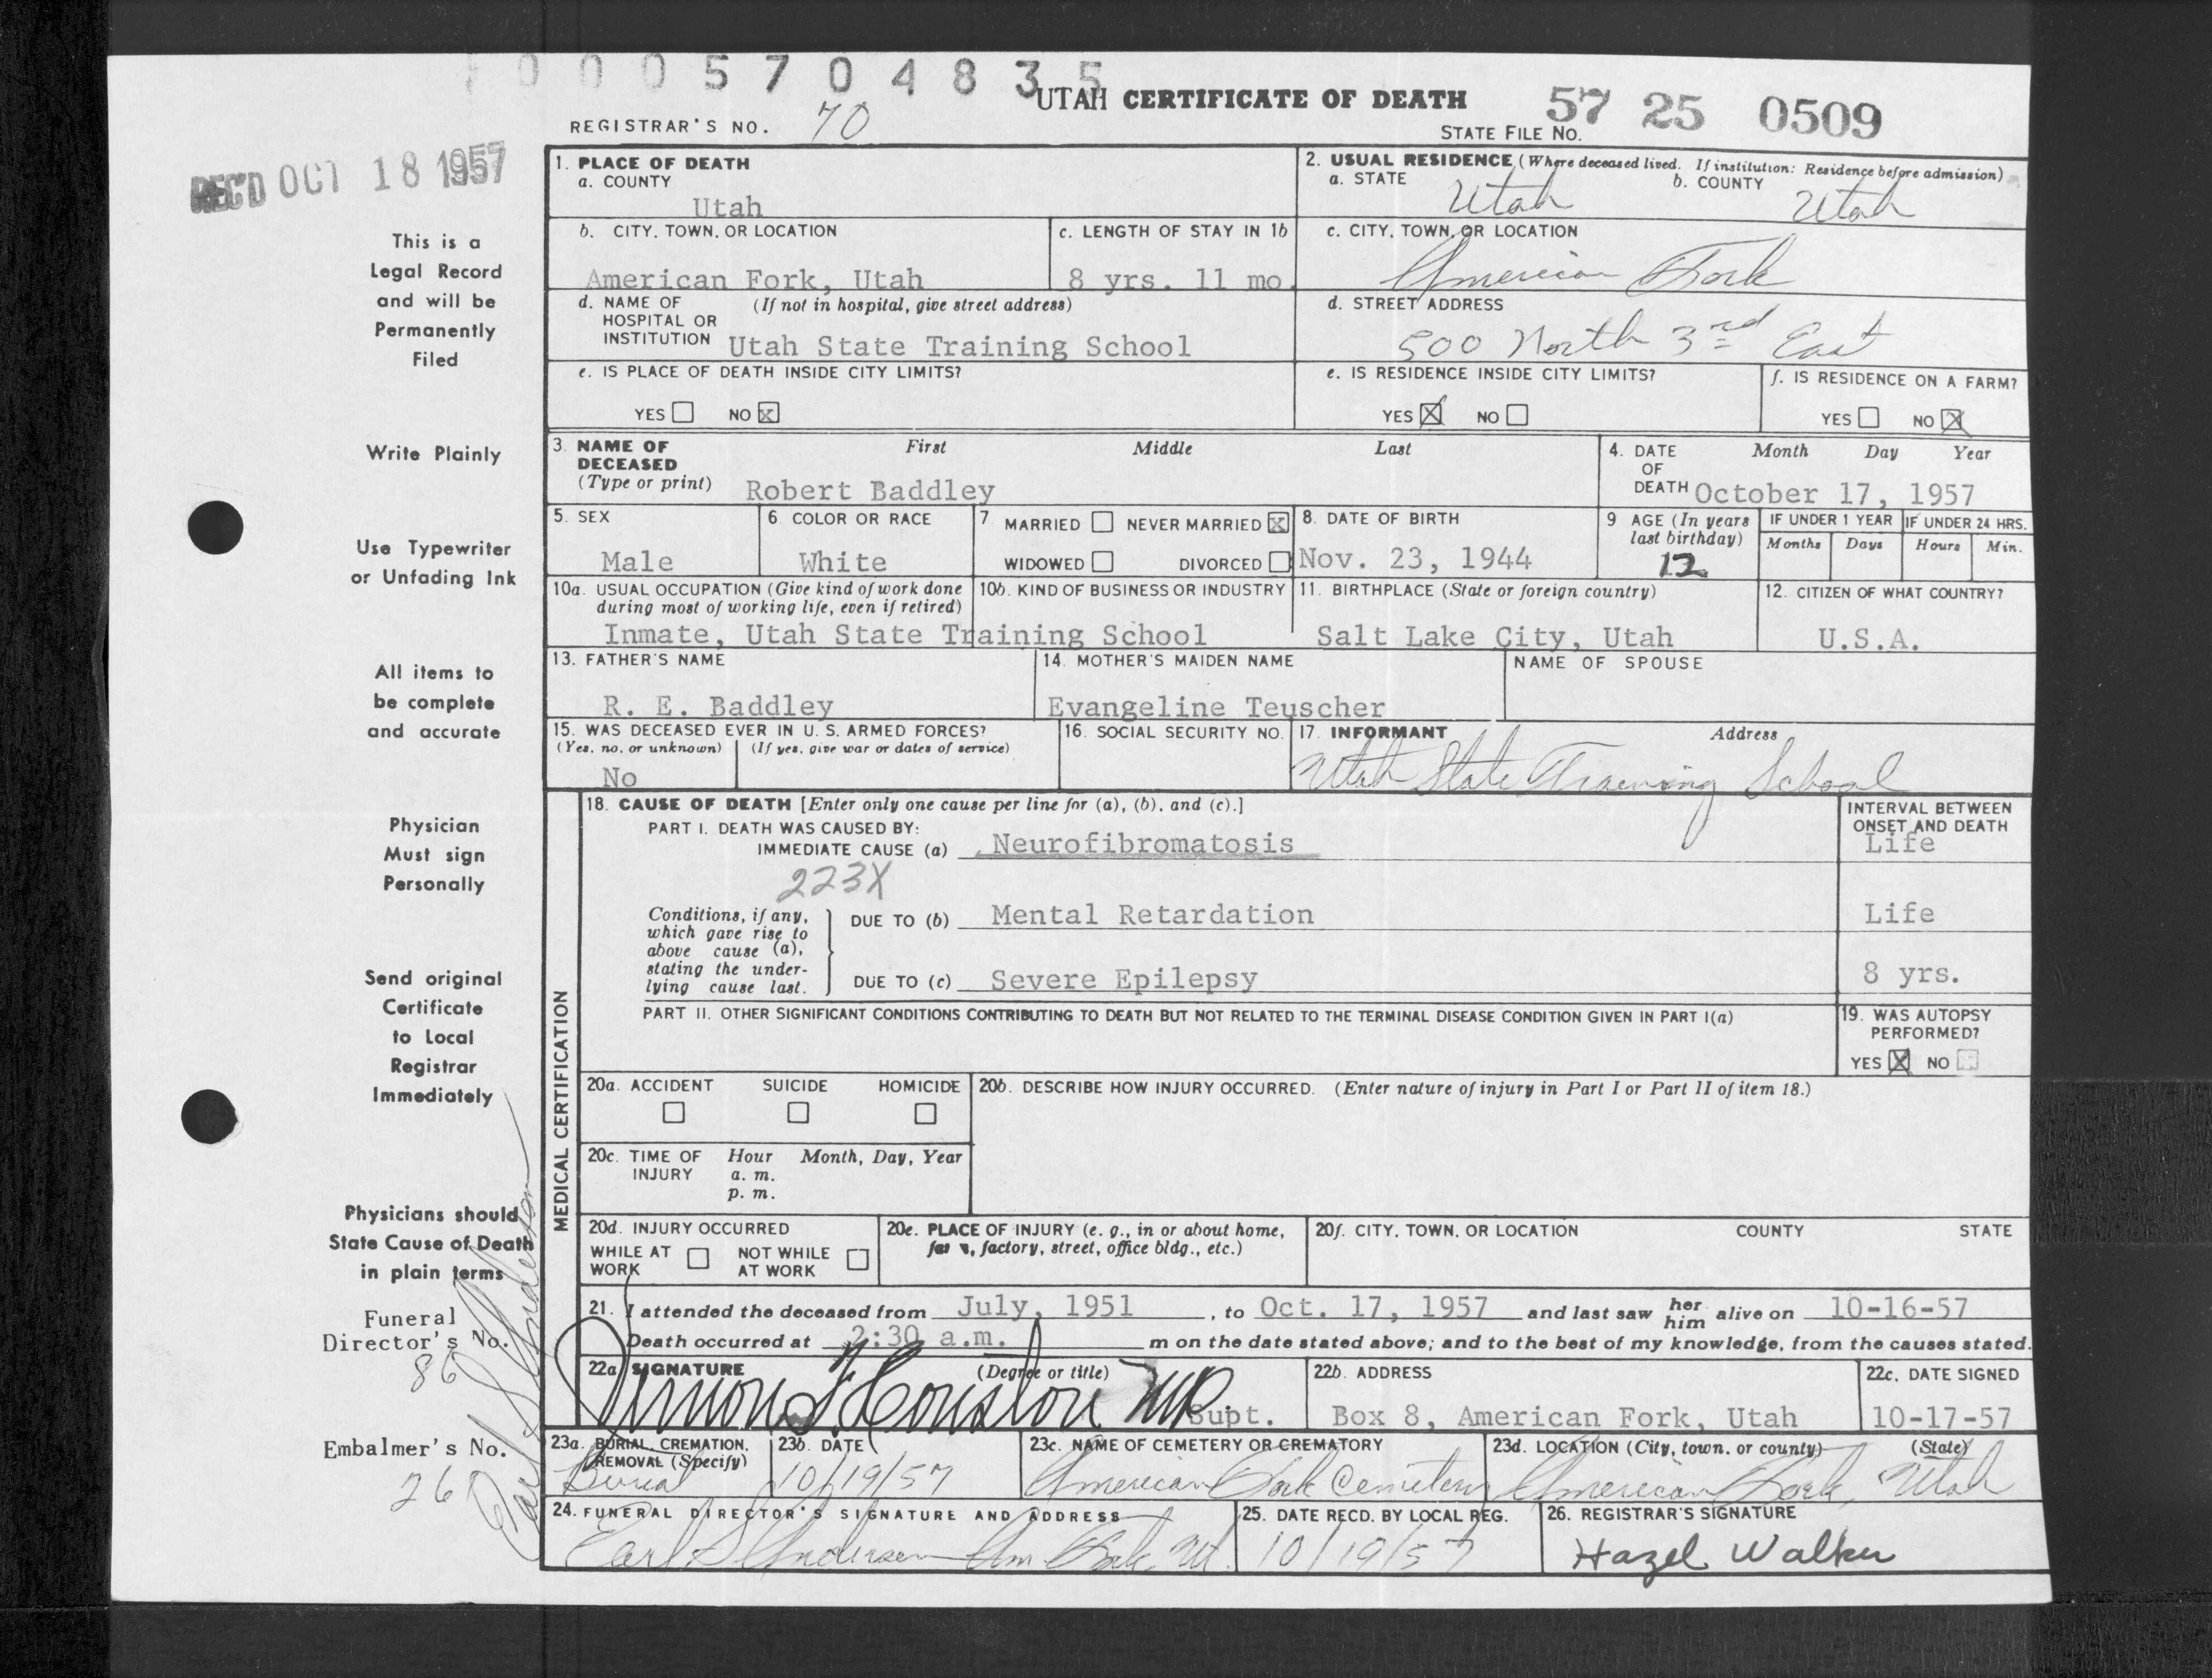 0005704835
UTAH CERTIFICATE OF DEATH
57 25 0509
REGISTRAR'S NO. 70
STATE FILE NO.
REC'D OCT 18 1957
This is a
Legal Record
and will be
Permanently
Filed
Write Plainly
Use Typewriter
or Unfading Ink
All items to
be complete
and accurate
Physician
Must sign
Personally
Send original
Certificate
to Local
Registrar
Immediately
Physicians should
State Cause of Death
in plain terms
Funeral
Director's No.
86
Embalmer's No.
26
Earl S Anderson
1. PLACE OF DEATH
a. COUNTY
Utah
2. USUAL RESIDENCE (Where deceased lived. If institution: Residence before admission)
a. STATE Utah b. COUNTY Utah
b. CITY, TOWN, OR LOCATION
American Fork, Utah
c. LENGTH OF STAY IN 1b
8 yrs. 11 mo.
c. CITY, TOWN, OR LOCATION
American Fork
d. NAME OF (If not in hospital, give street address)
HOSPITAL OR
INSTITUTION Utah State Training School
d. STREET ADDRESS
500 North 3rd East
e. IS PLACE OF DEATH INSIDE CITY LIMITS?
YES NO X
e. IS RESIDENCE INSIDE CITY LIMITS?
YES X NO
f. IS RESIDENCE ON A FARM?
YES NO X
3. NAME OF First Middle Last
DECEASED
(Type or print) Robert Baddley
4. DATE Month Day Year
OF
DEATH October 17, 1957
5. SEX
Male
6 COLOR OR RACE
White
7 MARRIED NEVER MARRIED X
WIDOWED DIVORCED
8. DATE OF BIRTH
Nov. 23, 1944
9 AGE (In years
last birthday)
12
IF UNDER 1 YEAR
Months Days
IF UNDER 24 HRS.
Hours Min.
10a. USUAL OCCUPATION (Give kind of work done
during most of working life, even if retired)
10b. KIND OF BUSINESS OR INDUSTRY
Inmate, Utah State Training School
11. BIRTHPLACE (State or foreign country)
Salt Lake City, Utah
12. CITIZEN OF WHAT COUNTRY?
U.S.A.
13. FATHER'S NAME
R. E. Baddley
14. MOTHER'S MAIDEN NAME
Evangeline Teuscher
NAME OF SPOUSE
15. WAS DECEASED EVER IN U. S. ARMED FORCES?
(Yes, no, or unknown) (If yes, give war or dates of service)
No
16. SOCIAL SECURITY NO.
17. INFORMANT Address
Utah State Training School
MEDICAL CERTIFICATION
18. CAUSE OF DEATH [Enter only one cause per line for (a), (b), and (c).]
INTERVAL BETWEEN
ONSET AND DEATH
PART I. DEATH WAS CAUSED BY:
IMMEDIATE CAUSE (a) Neurofibromatosis Life
223X
Conditions, if any,
which gave rise to
above cause (a),
stating the under-
lying cause last.
DUE TO (b) Mental Retardation Life
DUE TO (c) Severe Epilepsy 8 yrs.
PART II. OTHER SIGNIFICANT CONDITIONS CONTRIBUTING TO DEATH BUT NOT RELATED TO THE TERMINAL DISEASE CONDITION GIVEN IN PART I(a)
19. WAS AUTOPSY
PERFORMED?
YES X NO
20a. ACCIDENT SUICIDE HOMICIDE
20b. DESCRIBE HOW INJURY OCCURRED. (Enter nature of injury in Part I or Part II of item 18.)
20c. TIME OF Hour Month, Day, Year
INJURY a. m.
p. m.
20d. INJURY OCCURRED
WHILE AT NOT WHILE
WORK AT WORK
20e. PLACE OF INJURY (e. g., in or about home,
farm, factory, street, office bldg., etc.)
20f. CITY, TOWN, OR LOCATION COUNTY STATE
21. I attended the deceased from July, 1951, to Oct. 17, 1957 and last saw her him alive on 10-16-57
Death occurred at 2:30 a.m. m on the date stated above; and to the best of my knowledge, from the causes stated.
22a SIGNATURE (Degree or title)
Vernon F. Houston MD. Supt.
22b. ADDRESS
Box 8, American Fork, Utah
22c. DATE SIGNED
10-17-57
23a. BURIAL, CREMATION,
REMOVAL (Specify)
Burial
23b. DATE
10/19/57
23c. NAME OF CEMETERY OR CREMATORY
American Fork Cemetery
23d. LOCATION (City, town, or county) (State)
American Fork, Utah
24. FUNERAL DIRECTOR'S SIGNATURE AND ADDRESS
Earl S Anderson Am. Fork, Ut.
25. DATE RECD. BY LOCAL REG.
10/19/57
26. REGISTRAR'S SIGNATURE
Hazel Walker